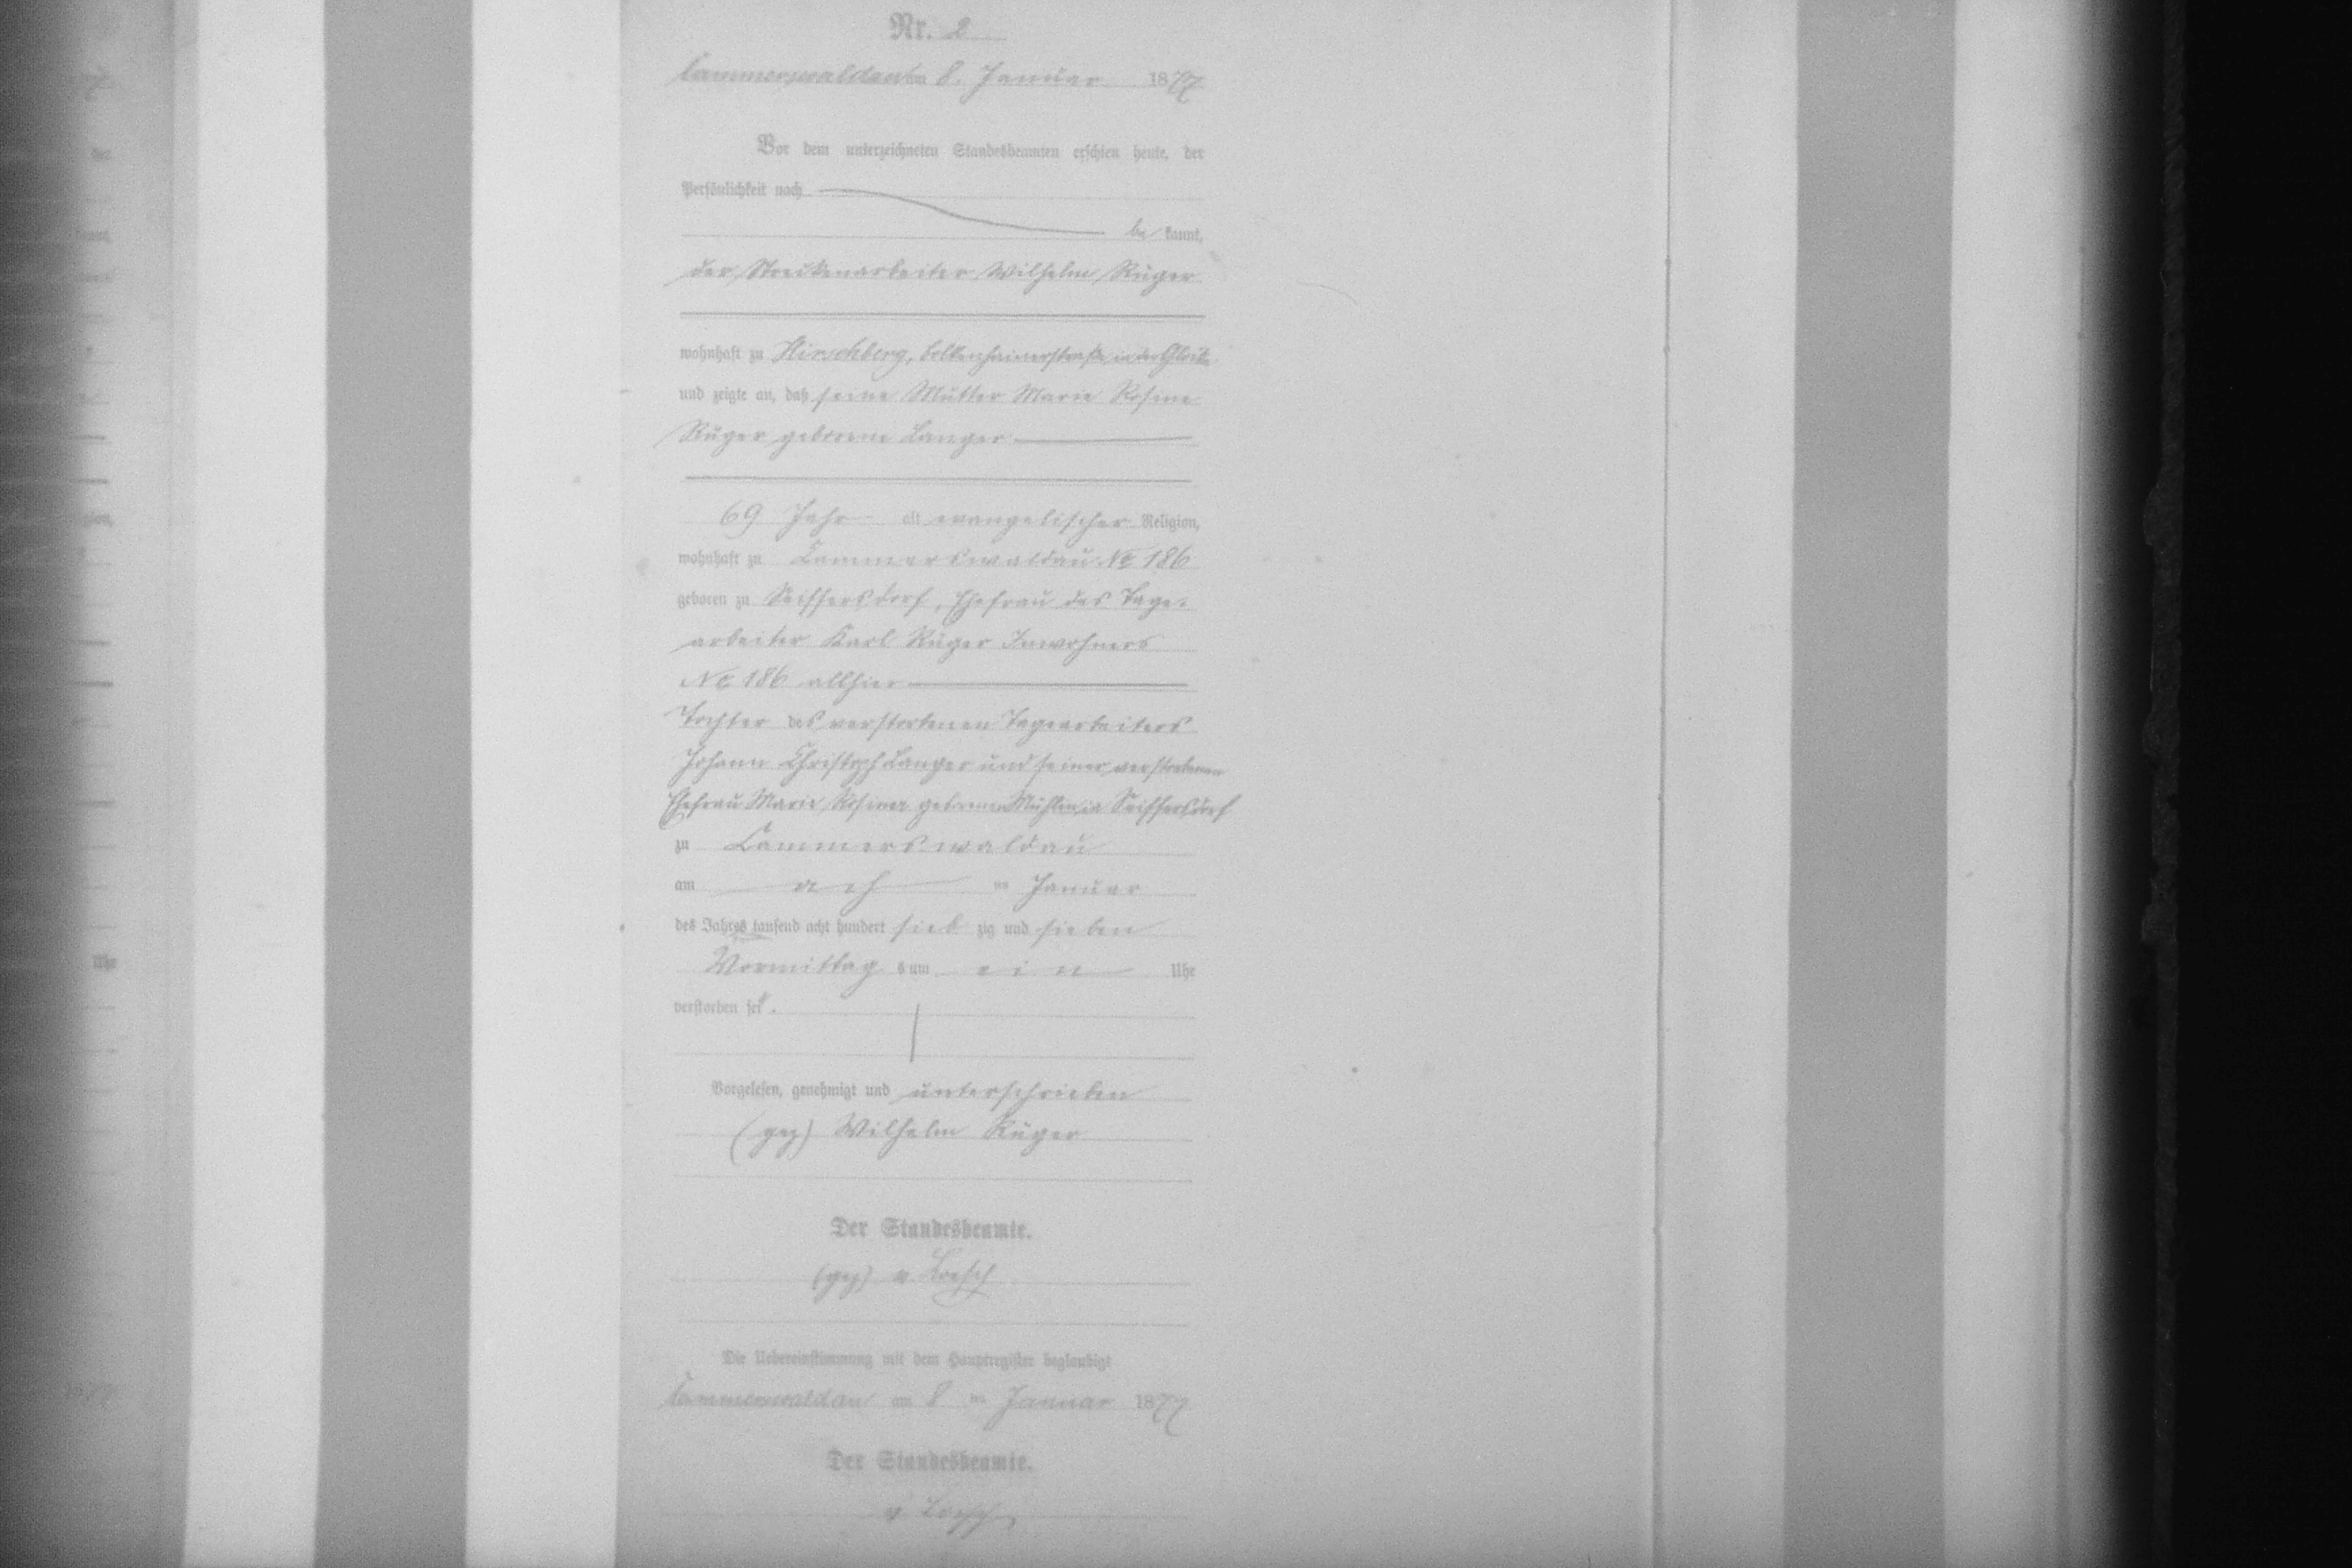 Nr. 2
Cammerswaldau am 8. Januar 1877
Vor dem unterzeichneten Standesbeamten erschien heute, der
Persönlichkeit nach
be kannt,
der Streckenarbeiter Wilhelm Rüger
wohnhaft zu Hirschberg, bolkenhainerstraße in der
und zeigte an, daß seine Mutter Marie Rosine
Rüger geborene Langer
69 Jahr alt evangelischer Religion,
wohnhaft zu Cammerswaldau No 186
geboren zu Seiffersdorf, Ehefrau des Tage-
arbeiter Karl Rüger Inwohners
No 186 allhier
Tochter des verstorbenen Tagearbeiters
Johann Christoph Langer und seiner verstorbenen
Ehefrau Marie Rosina geborenen in Seiffersdorf
zu Cammerswaldau
am ach ten Januar
des Jahres tausend acht hundert sieb zig und sieben
Vormittag s um ein Uhr
verstorben sei.
Vorgelesen, genehmigt und unterschrieben
(gez) Wilhelm Rüger
Der Standesbeamte.
(gez) v. Loesch
Die Uebereinstimmung mit dem Hauptregister beglaubigt
Cammerswaldau am 8 ten Januar 1877
Der Standesbeamte.
v. Loesch